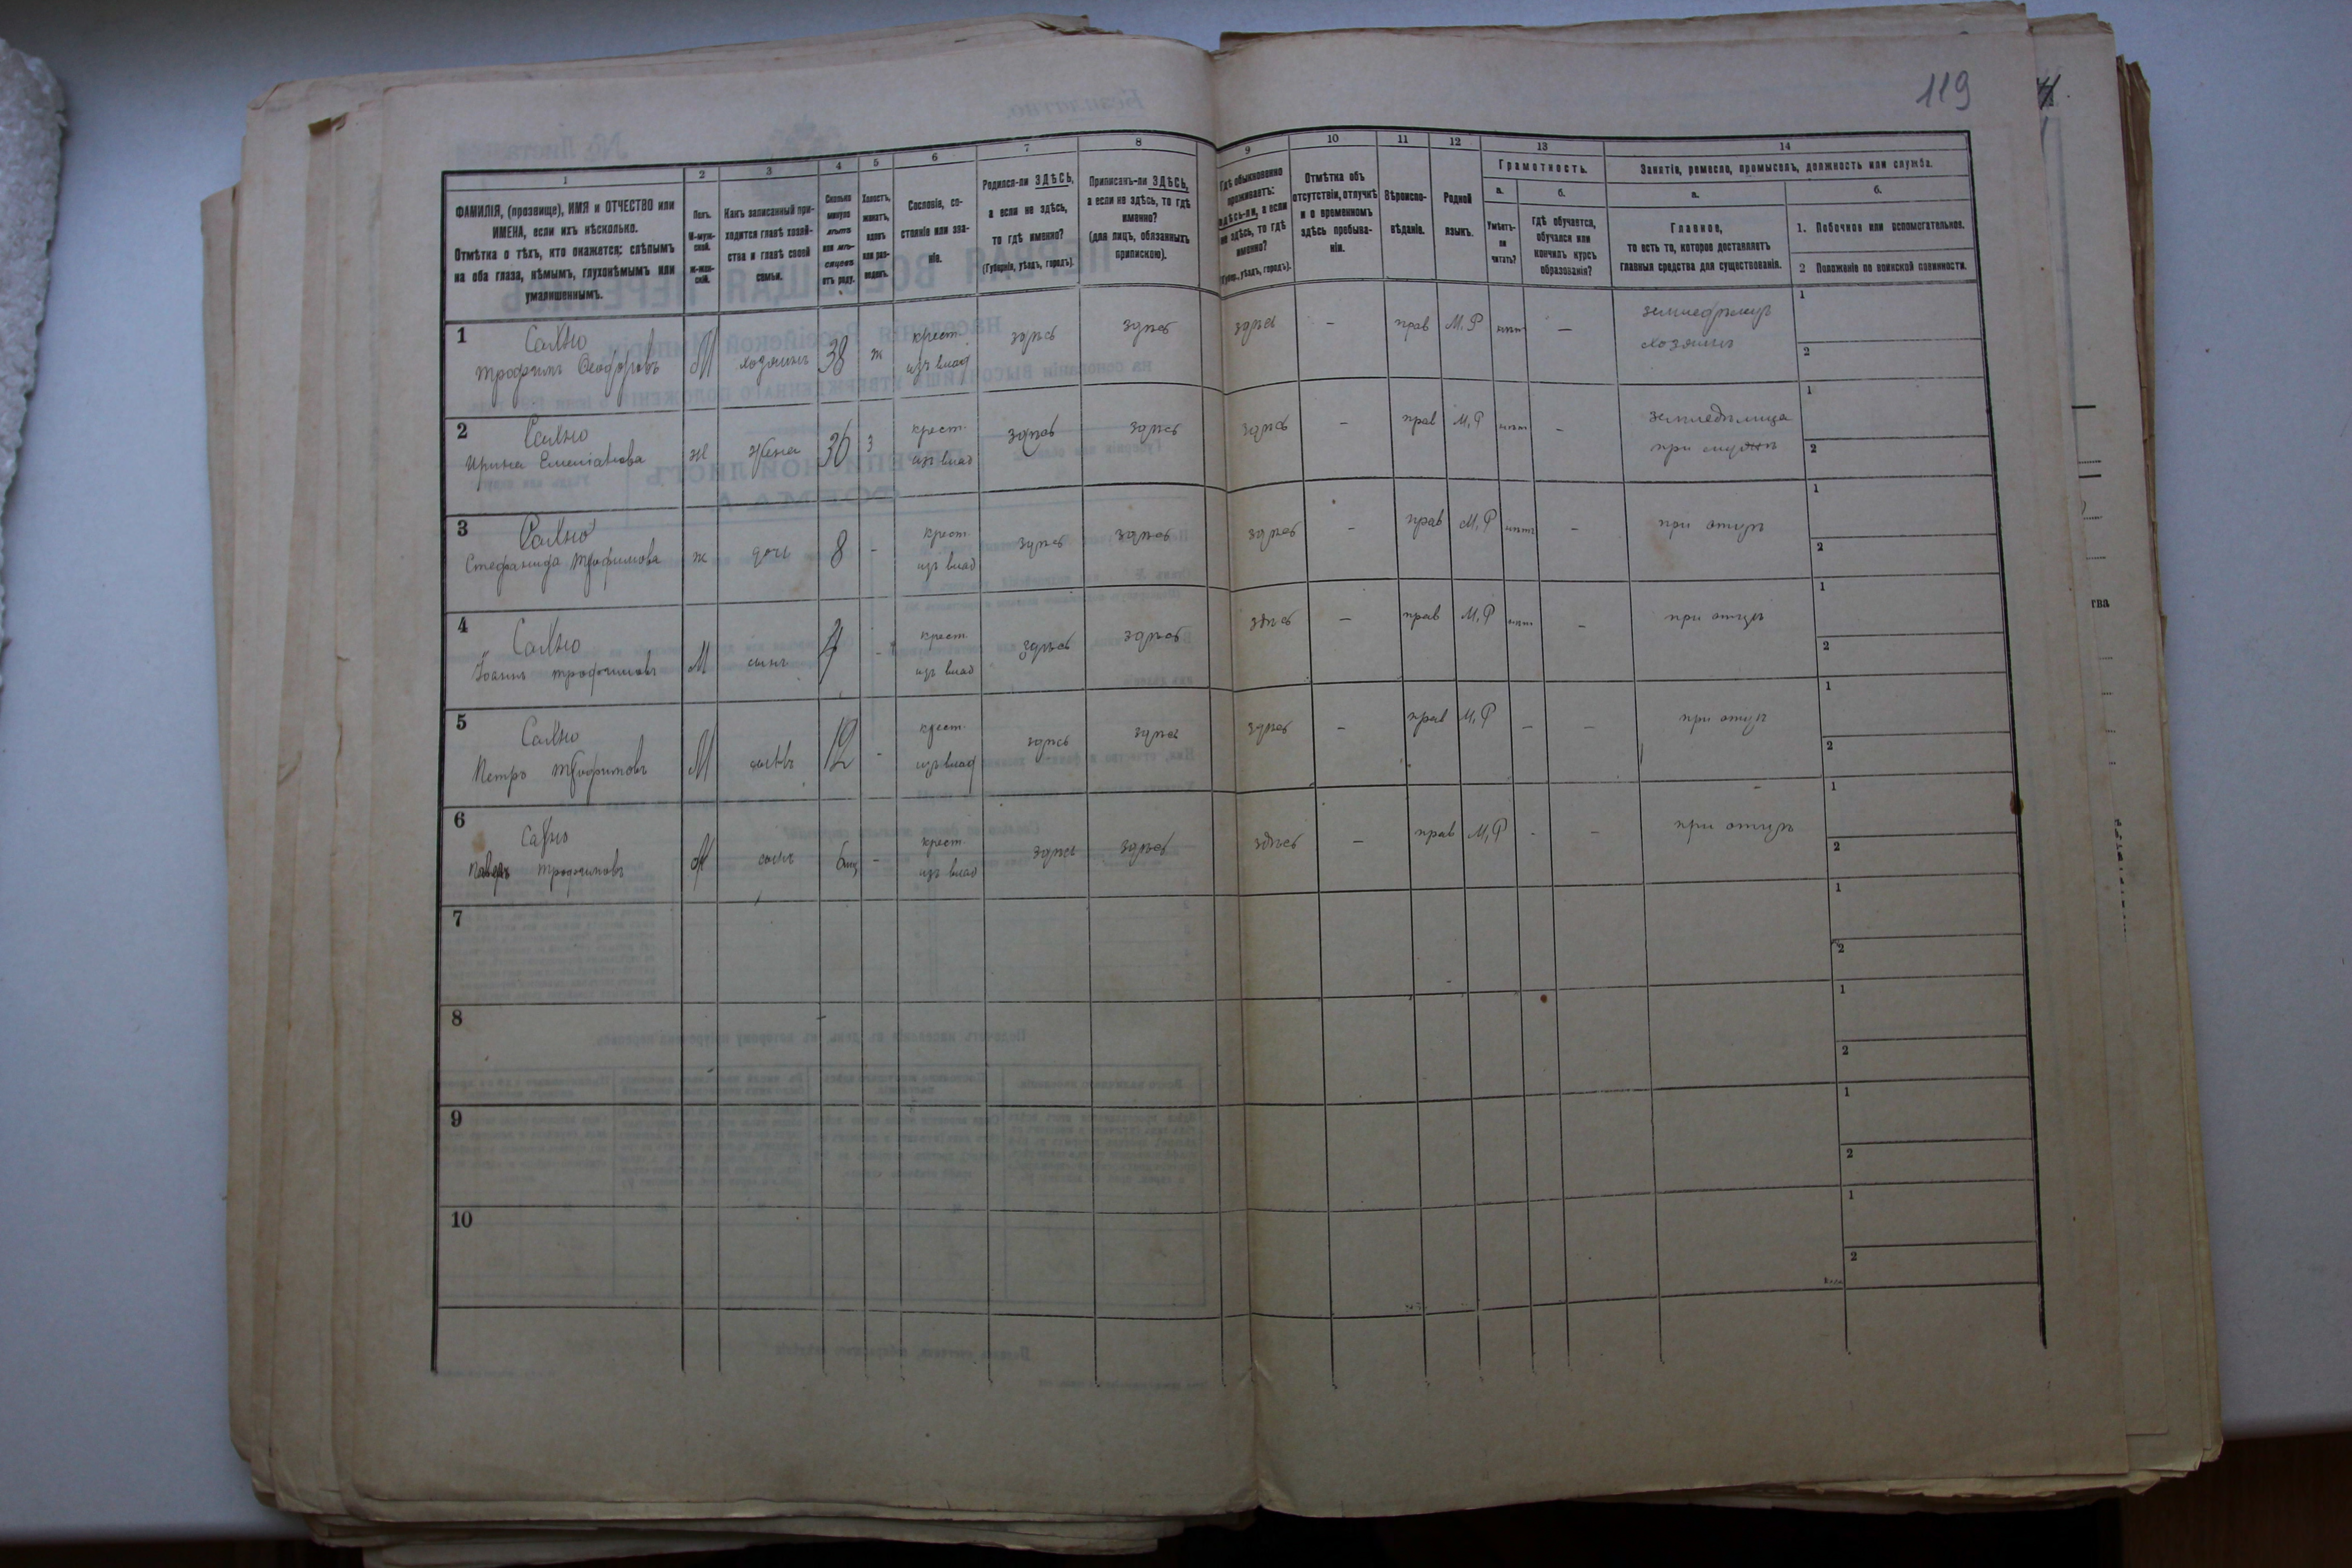 119
1
2
3
4
5
6
7
8
9
10
11
12
13
14
ФАМИЛІЯ, (прозвище), ИМЯ и ОТЧЕСТВО или
ИМЕНА, если ихъ нѣсколько.
Отмѣтка о тѣхъ, кто окажется: слѣпымъ
на оба глаза, нѣмымъ, глухонѣмымъ или
умалишеннымъ.
Полъ.
М-муж-
ской.
Ж-жен-
скій.
Какъ записанный при-
ходится главѣ хозяй-
ства и главѣ своей
семьи.
Сколько
минуло
лѣтъ
или мѣ-
сяцевъ
отъ роду.
Холостъ,
женатъ,
вдовъ
или раз-
веденъ.
Сословіе, со-
стояніе или зва-
ніе.
Родился-ли ЗДѢСЬ,
а если не здѣсь,
то гдѣ именно?
(Губернія, уѣздъ, городъ).
Приписанъ-ли ЗДѢСЬ,
а если не здѣсь, то гдѣ
именно?
(для лицъ, обязанныхъ
припискою).
Гдѣ обыкновенно
проживаетъ:
здѣсь-ли, а если
не здѣсь, то гдѣ
именно?
(Губерн., уѣздъ, городъ).
Отмѣтка объ
отсутствіи, отлучкѣ
и о временномъ
здѣсь пребыва-
ніи.
Вѣроиспо-
вѣданіе.
Родной
языкъ.
Грамотность.
а.
б.
Умѣетъ-
ли
читать?
Гдѣ обучается,
обучался или
кончилъ курсъ
образованія?
Занятіе, ремесло, промыселъ, должность или служба.
а.
б.
Главное,
то есть то, которое доставляетъ
главныя средства для существованія.
1. Побочное или вспомогательное.
2 Положеніе по воинской повинности.
1
Трофимъ Ѳеодоровъ
М
хозяинъ
38
ж
крест.
изъ влад
здѣсь
здѣсь
здѣсь
—
прав
М. Р
нѣт
—
земледѣлецъ
хозяинъ
1
2
2
Ирина
ж
жена
36
з
крест.
изъ влад
здѣсь
здѣсь
здѣсь
—
прав
М, Р
нѣт
—
земледѣлица
при мужѣ
1
2
3
Стефанида Трофимова
ж
дочь
8
-
крест
изъ влад
здѣсь
здѣсь
здѣсь
—
прав
М, Р
нѣтъ
—
при отцѣ
1
2
4
Іоаннъ Трофимовъ
М
сынъ
-
крест
изъ влад
здѣсь
здѣсь
здѣсь
—
прав
М, Р
нѣт
—
при отцѣ
1
2
5
Петръ Трофимовъ
М
сынъ
12
-
крест.
изъ влад
здѣсь
здѣсь
здѣсь
—
прав
М, Р
—
—
при отцѣ
1
2
6
Трофимовъ
М
сынъ
6 мц
-
крест.
изъ влад
здѣсь
здѣсь
здѣсь
—
прав
М, Р
-
—
при отцѣ
1
2
7
1
2
8
1
2
9
1
2
10
1
2